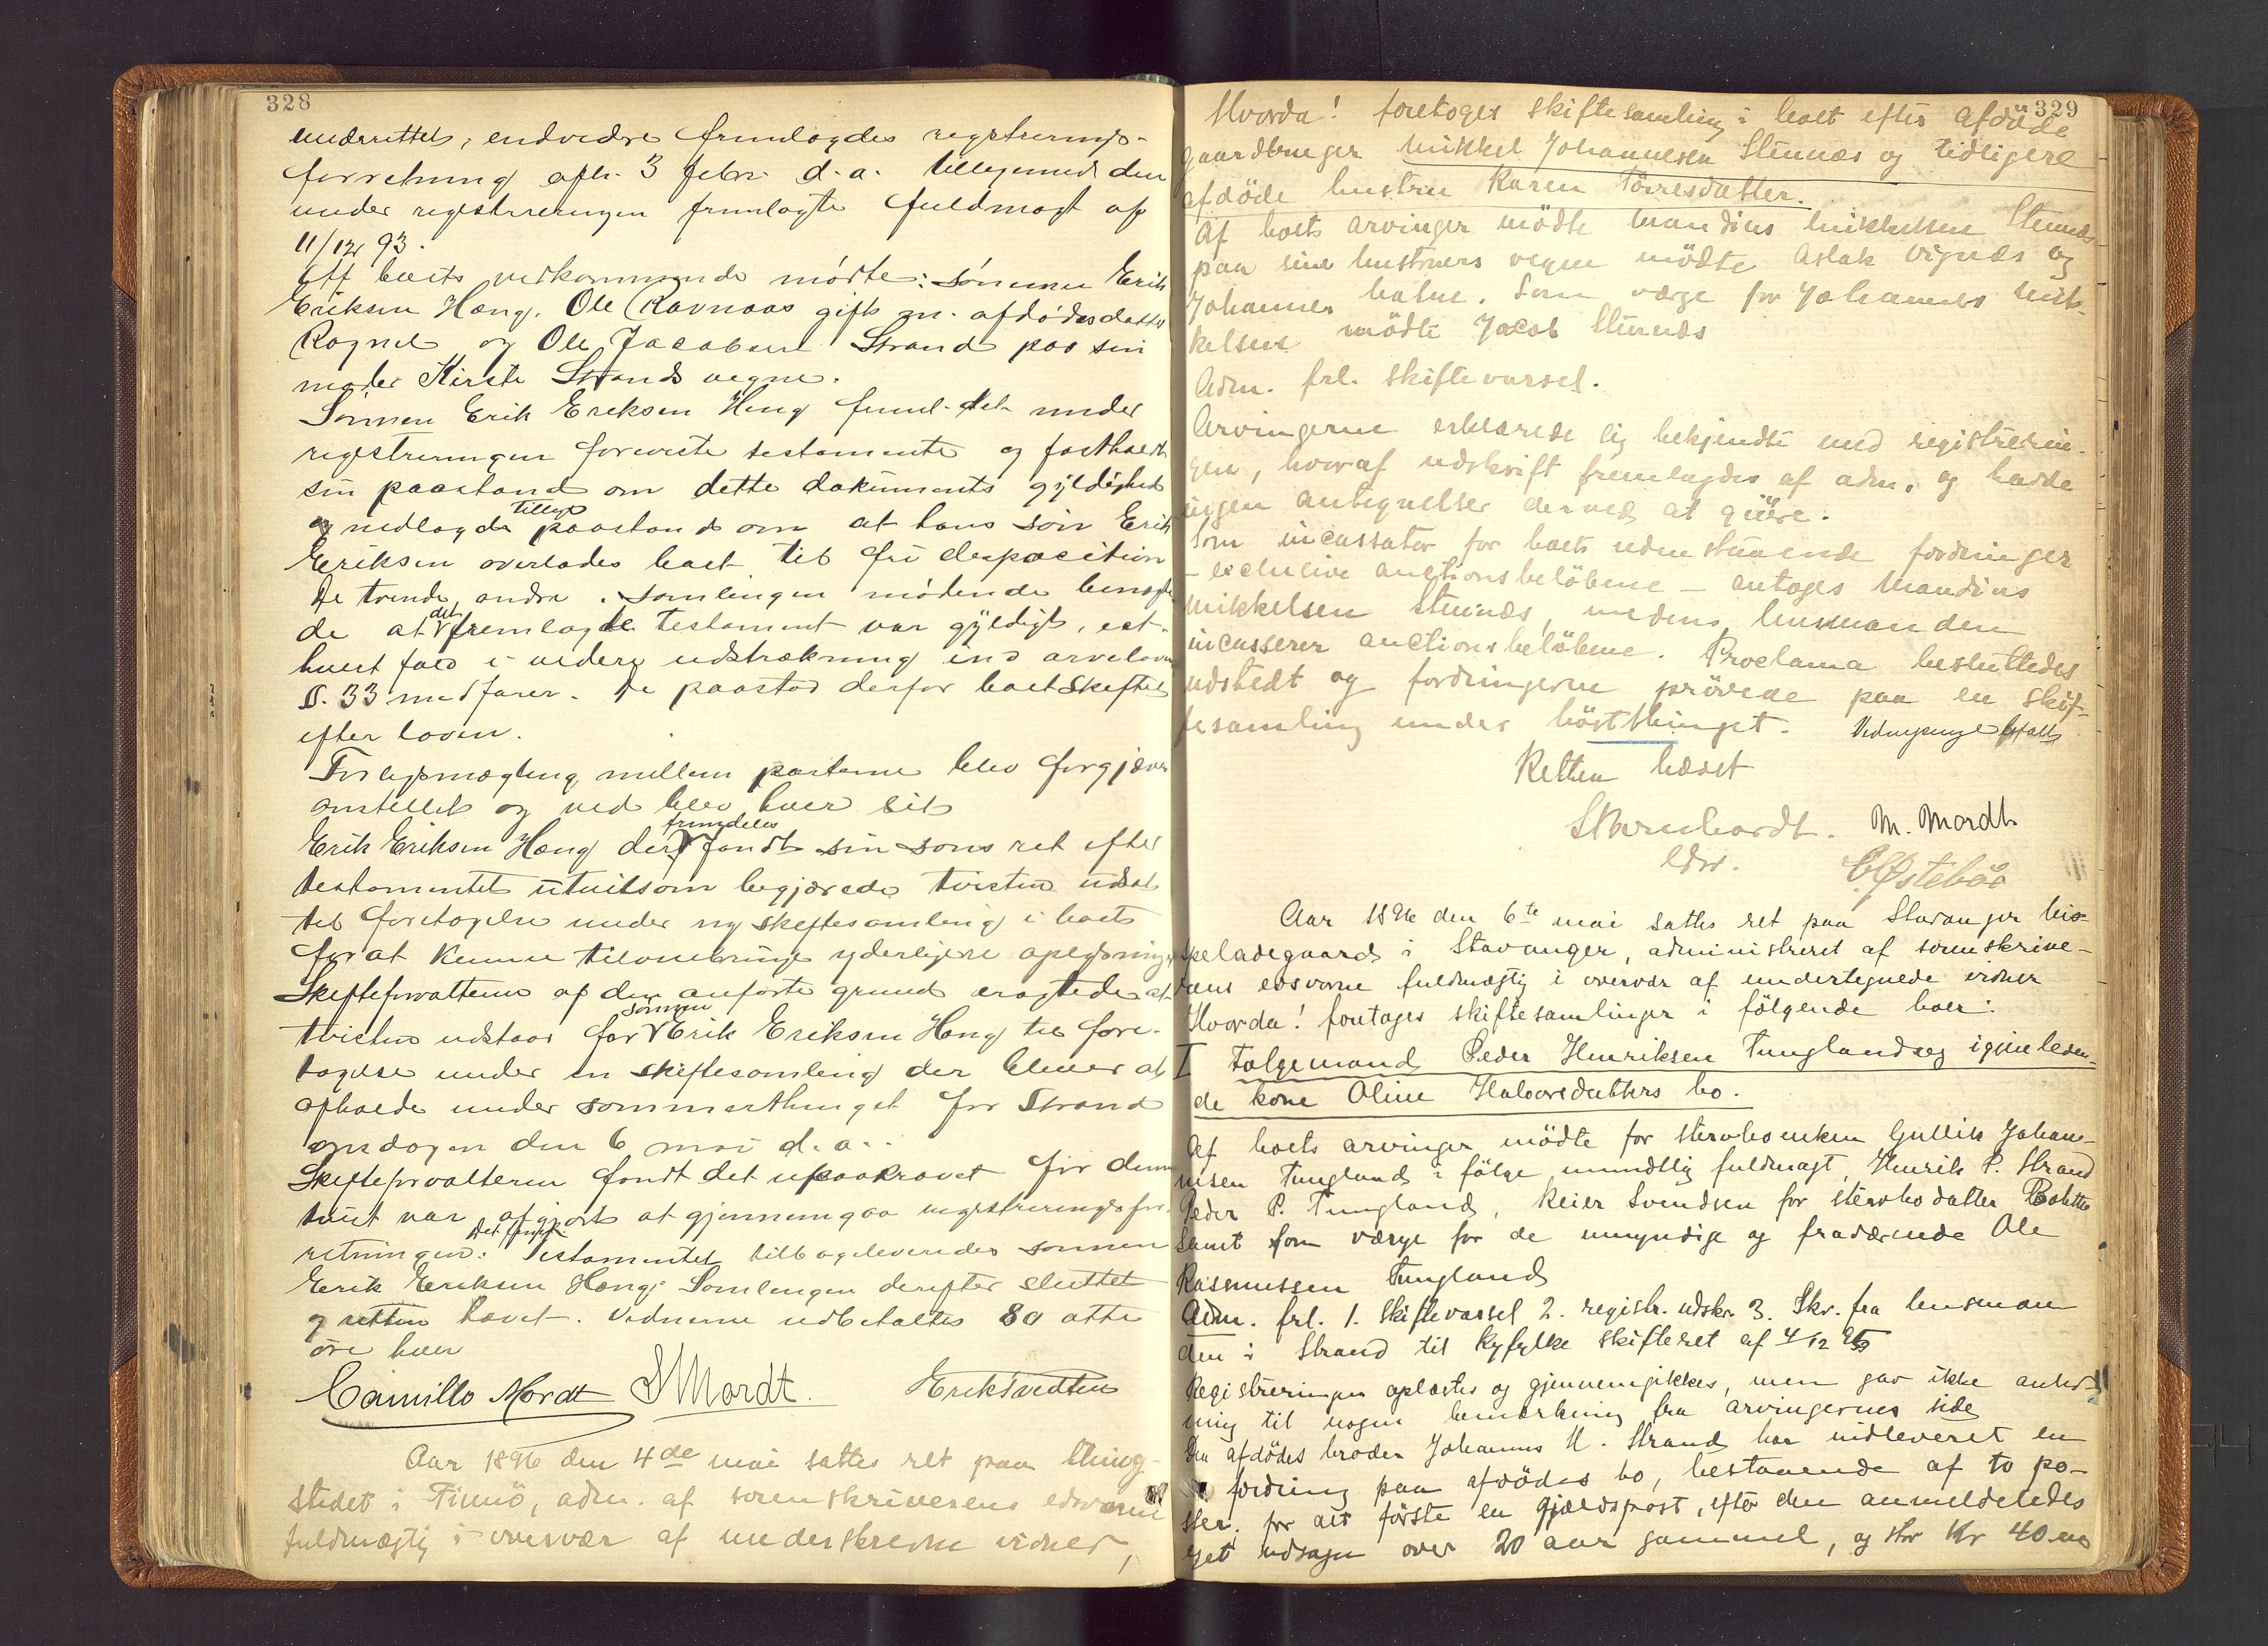 328
underrettet, endvidere fremlagdes registrerings-
forretning afh. 3 febr. d.a. tilligemed den
under registreringen fremlagte fuldmagt af
11/12 93.
Af boets vedkommende mødte: sønnen Erik
Eriksen Høng, Ole Ravnaas gift m. afdødes datter
Ragnel og Ole Jacobsen Strand paa sin
moder Kirste Strands vegne.
Sønnen Erik Eriksen Høng feml. det under
registreringen foreviste testamente og fastholdt
sin paastand om dette dokuments gyldighed
og nedlagde tillige paastand om at hans søn Erik
Eriksen overlades boet til fri desposition
De tvende andre i samlingen mødende benegte-
de at det fremlagte testament var gyldigt, i et-
hvert fald i videre udstrækning end arveloven
§. 33 medfører. De paastod derfor boet skiftet
efter loven.
Forligsmægling mellem parterne blev forgjæves
anstillet og ved blev hver sit
Erik Eriksen Høng der fremdeles fandt sin søns ret efter
testamentet utvilsom begjærede tvisten udsat
til foretagelse under ny skiftesamling i boet
for at kunne tilveiebringe yderligere oplysninger
Skifteforvalteren af den anførte grund eragtede at
tvisten udstaar for sønnen Erik Eriksen Høng til fore-
tagelse under en skiftesamling der bliver at
afholde under sommerthinget for Strand
onsdagen den 6 mai d.a..
Skifteforvalteren fandt det upaakrævet før denne
tvist var afgjort at gjennemgaa registreringsfor-
retningen. Det fremlagte Testamentet tilbageleveredes sønnen
Erik Eriksen Høng. Samlingen derefter sluttet
og retten hævet. Vidnerne udbetaltes 80 otti
øre hver
Camillo Mordt SMordt. Erik Tvedten
Aar 1896 den 4de mai sattes ret paa thing-
stedet i Finnö, adm. af sorenskriverens edsvorne
fuldmægtig i overvær af underskrevne vidner,
329
Hvorda! foretoges skiftesamling i boet efter afdöde
gaardbruger Mikkel Johannesen Stennæs og tidligere
afdöde hustru Karen Törresdatter.
Af boets arvinger mödte Mandius Mikkelsen Stennæs
paa sine hustruers vegne mödte Aslak Vignæs og
Johannes Halne. Som værge for Johannes Mik-
kelsen mödte Jacob Stennæs
Adm. frl. skiftevarsel.
Arvingerne erklærede sig bekjendte med registrerin-
gen, hvoraf udskrift fremlagdes af adm. og havde
ingen antegnelser derved at gjöre.
Som incassator for boets udenstaaende fordringer
- exclusive auctionsbelöbene - antoges Mandius
Mikkelsen Stennæs, medens lensmanden
incasserer auctionsbelöbene. Proclama besluttedes
udstedt og fordringerne prövede paa en skif-
tesamling under höstthinget. Vidnepenge betalt
Retten hævet
SBernhardt. M. Mordt
edsv. E Østeböe
Aar 1896 den 6te mai sattes ret paa Stavanger bis-
peladegaard i Stavanger, administreret af sorenskrive-
rens edsvorne fuldmægtig i overvær af undertegnede vidner
Hvorda! foretoges skiftesamlinger i fölgende boer:
I Folgemand Peder Henriksen Tunglands og igjenleven-
de kone Oline Halvorsdatters bo.
Af boets arvinger mödte for stervboenken Gullik Johan-
nesen Tungland i fölge mundtlig fuldmagt, Henrik P. Strand
Peder P. Tungland, Reier Svendsen for stervbodatter Bolette
samt som værge for de umyndige og fraværende Ole
Rasmussen Tungland
Adm. frl. 1. skiftevarsel 2. registr. udskr. 3. Skr. fra lensman
den i Strand til Ryfylke skifteret af 4/12 95
Registreringen oplæstes og gjennemgikkes, men gav ikke anled-
ning til nogen bemærkning fra arvingernes side
Den afdödes broder Johannes H. Strand har indleveret en
fordring paa afdödes bo, bestaaende af to po-
ster. for det förste en gjældspost, efter den anmeldendes
eget udsagn over 20 aar gammel, og stor Kr 40.00